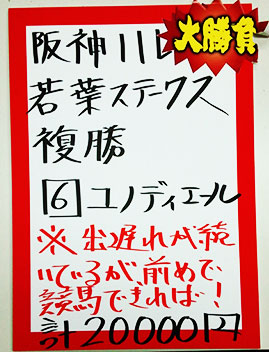 阪神11レ
大勝負
若葉ステークス
複勝
6 ユノディエール
※出遅れが続
いているが、前めで
競馬できれば！
計20000円